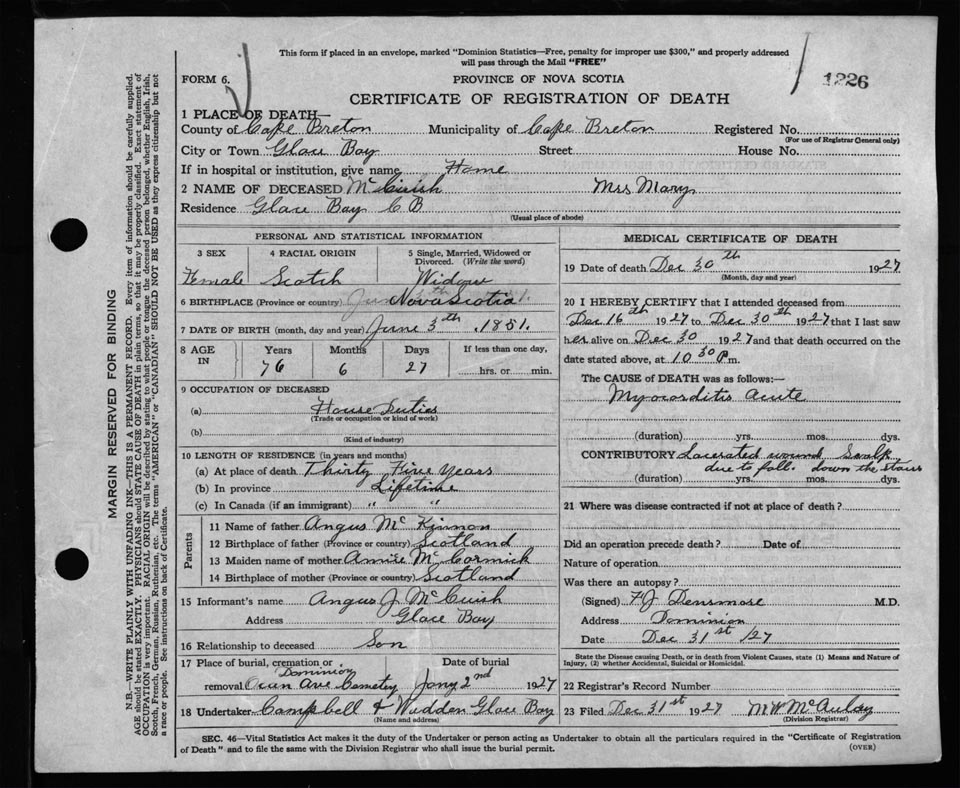 This form if placed in an envelope, marked "Dominion Statistics—Free, penalty for improper use $300," and properly addressed
will pass through the Mail "FREE"
FORM 6.
PROVINCE OF NOVA SCOTIA
1226
CERTIFICATE OF REGISTRATION OF DEATH
1 PLACE OF DEATH—
County of Cape Breton Municipality of Cape Breton Registered No.
(For use of Registrar General only)
City or Town Glace Bay Street House No.
If in hospital or institution, give name Home
2 NAME OF DECEASED McCuish Mrs Mary
Residence Glace Bay C B
(Usual place of abode)
PERSONAL AND STATISTICAL INFORMATION
3 SEX 4 RACIAL ORIGIN 5 Single, Married, Widowed or Divorced. (Write the word)
Female Scotch Widow
6 BIRTHPLACE (Province or country) Nova Scotia
7 DATE OF BIRTH (month, day and year) June 3th 1851.
8 AGE IN Years Months Days If less than one day,
76 6 27 hrs. or min.
9 OCCUPATION OF DECEASED
(a) House Duties
(Trade or occupation or kind of work)
(b)
(Kind of industry)
10 LENGTH OF RESIDENCE (in years and months)
(a) At place of death Thirty Five Years
(b) In province Lifetime
(c) In Canada (if an immigrant) " "
Parents
11 Name of father Angus McKinnon
12 Birthplace of father (Province or country) Scotland
13 Maiden name of mother Annie McCormick
14 Birthplace of mother (Province or country) Scotland
15 Informant's name Angus J McCuish
Address Glace Bay
16 Relationship to deceased Son
17 Place of burial, cremation or Date of burial
Dominion
removal Ocean Ave Cemetery Jany 2nd 1927
18 Undertaker Campbell & Wadden Glace Bay
(Name and address)
MEDICAL CERTIFICATE OF DEATH
19 Date of death Dec 30th 1927
(Month, day and year)
20 I HEREBY CERTIFY that I attended deceased from
Dec 16th 1927 to Dec 30th 1927 that I last saw
her alive on Dec 30 1927 and that death occurred on the
date stated above, at 10 30 P m.
The CAUSE of DEATH was as follows:—
Myocarditis Acute
(duration) yrs. mos. dys.
CONTRIBUTORY Lacerated wound Scalp
due to fall down the stairs
(duration) yrs. mos. dys.
21 Where was disease contracted if not at place of death?
Did an operation precede death? Date of
Nature of operation
Was there an autopsy?
(Signed) F J Densmore M.D.
Address Dominion
Date Dec 31st /27
State the Disease causing Death, or in death from Violent Causes, state (1) Means and Nature of
Injury, (2) whether Accidental, Suicidal or Homicidal.
22 Registrar's Record Number
23 Filed Dec 31st 1927 M W McAulay
(Division Registrar)
SEC. 46—Vital Statistics Act makes it the duty of the Undertaker or person acting as Undertaker to obtain all the particulars required in the "Certificate of Registration
of Death" and to file the same with the Division Registrar who shall issue the burial permit.
(OVER)
MARGIN RESERVED FOR BINDING
N.B.—WRITE PLAINLY WITH UNFADING INK—THIS IS A PERMANENT RECORD. Every item of information should be carefully supplied.
AGE should be stated EXACTLY. PHYSICIANS should STATE CAUSE OF DEATH in plain terms, so that it may be properly classified. Exact statement of
OCCUPATION is very important. RACIAL ORIGIN will be described by stating to what people or tongue the deceased person belonged, whether English, Irish,
Scotch, French, German, Russian, Ruthenian, etc. The terms "AMERICAN" or "CANADIAN" SHOULD NOT BE USED as they express citizenship but not
a race or people. See instructions on back of Certificate.